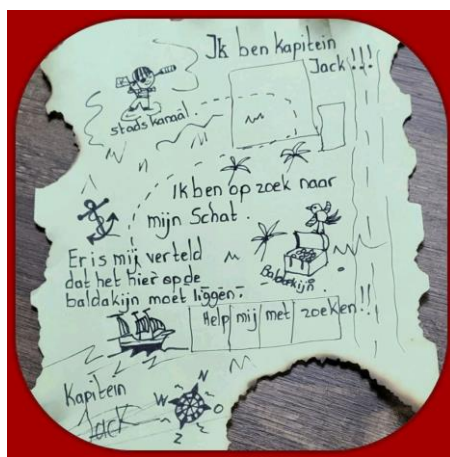 Ik ben Kapitein
Jack!!!
stadskanaal
Ik ben op zoek naar
mijn Schat.
Er is mij verteld
dat het hier op de
baldakijn moet liggen.
Baldakijn
Help mij met zoeken!!
Kapitein
Jack
N
W
O
Z